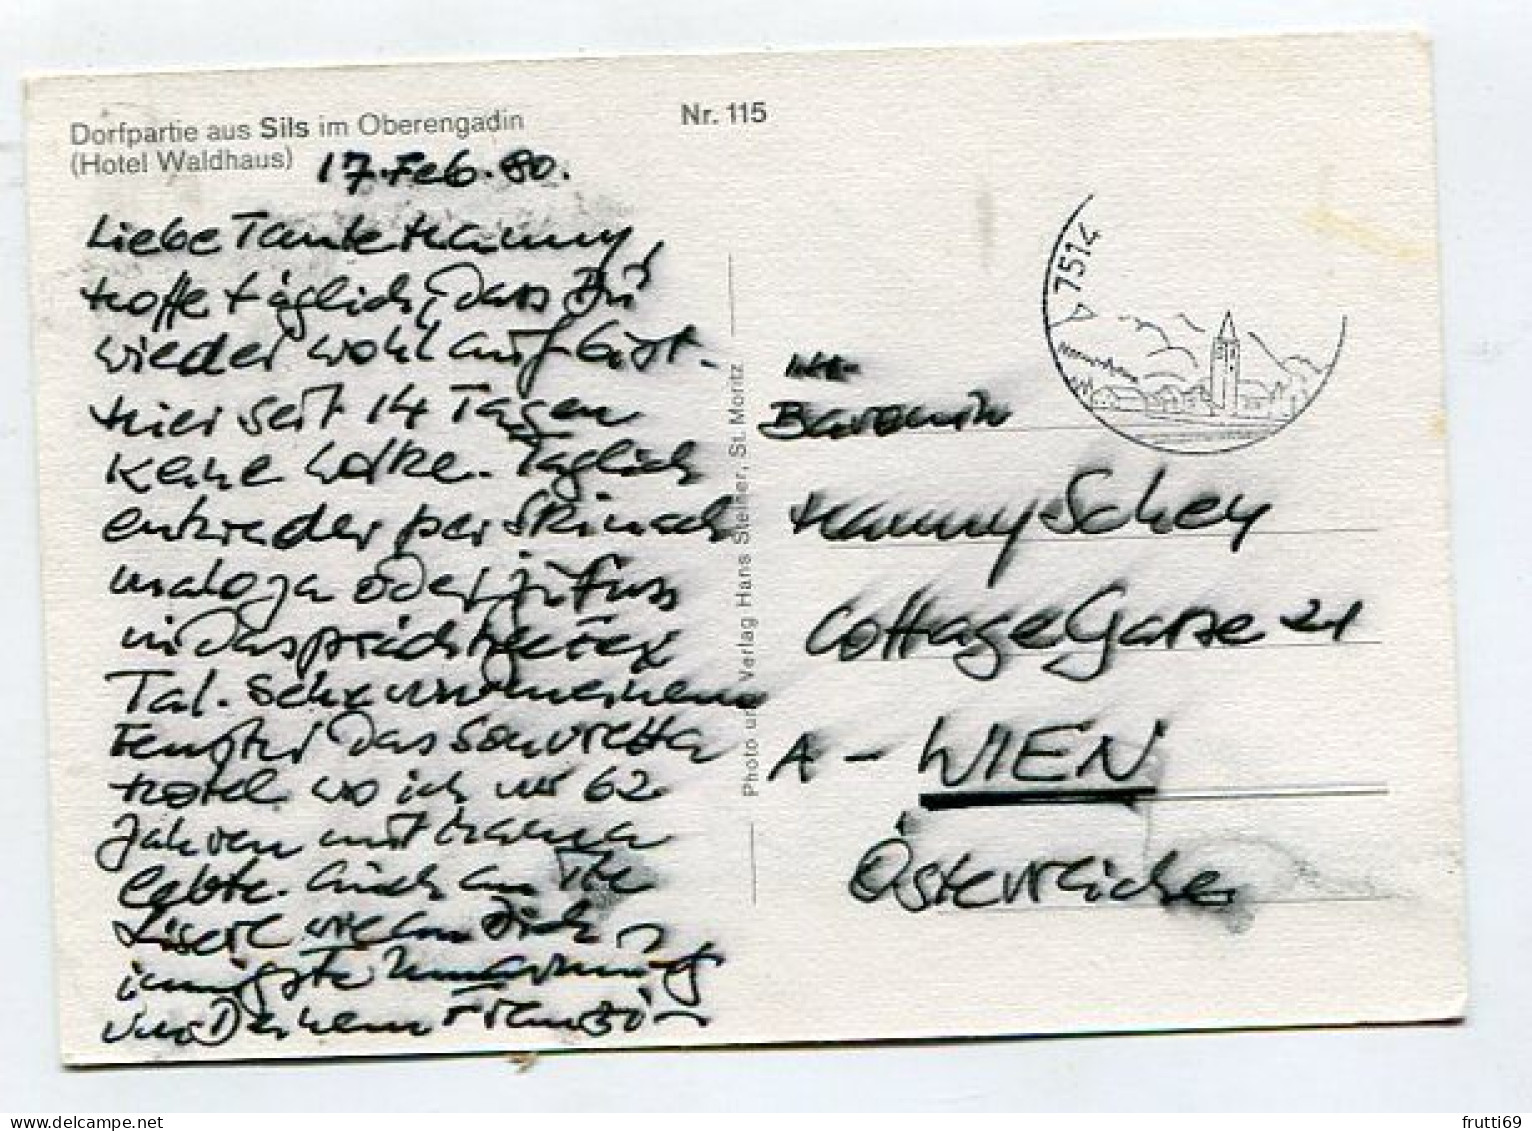 Dorfpartie aus Sils im Oberengadin
(Hotel Waldhaus)
Nr. 115
17. Feb. 80.
Liebe Tante Hanny,
Hoffe täglich, dass Du
wieder wohl auf bist.
Hier seit 14 Tagen
keine Wolke. Täglich
entweder per Ski nach
Maloja oder zu Fuss
in das prächtige Fex
Tal. Sehe von meinem
Fenster das Souvretta
Hotel wo ich vor 62
Jahren mit Mama
lebte. Auch an
Lisert wie an Dich
innigste Umarmung
von Deinem
Photo und Verlag Hans Steiner, St. Moritz
7514
Baronin
Hanny Schey
Cottage Gasse 21
A - WIEN
Österreich
frutti69